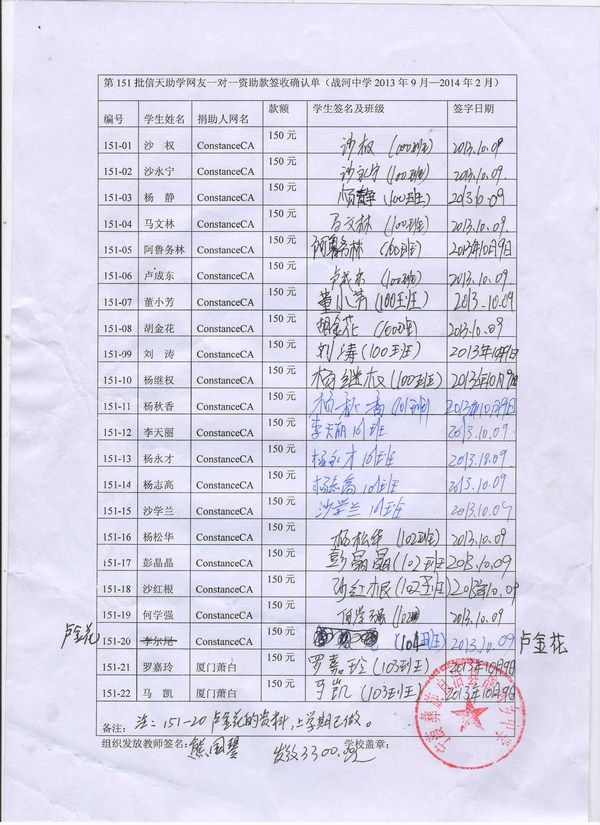 第151批信天助学网友一对一资助款签收确认单（战河中学2013年9月—2014年2月）
编号 学生姓名 捐助人网名 款额 学生签名及班级 签字日期
151-01 沙 权 ConstanceCA 150元 沙权 (100班) 2013.10.09
151-02 沙永宁 ConstanceCA 150元 沙永宁 (100班) 2013.10.09
151-03 杨 静 ConstanceCA 150元 杨静 (100班) 2013.10.09
151-04 马文林 ConstanceCA 150元 马文林 (100班) 2013.10.09.
151-05 阿鲁务林 ConstanceCA 150元 阿鲁务林 (100班) 2013年10月9日
151-06 卢成东 ConstanceCA 150元 卢成东 (100班) 2013.10.09
151-07 董小芳 ConstanceCA 150元 董小芳 (100班) 2013.10.09
151-08 胡金花 ConstanceCA 150元 胡金花 (100班) 2013.10.09
151-09 刘 涛 ConstanceCA 150元 刘涛 (100班) 2013年10月9日
151-10 杨继权 ConstanceCA 150元 杨继权 (100班) 2013年10月9日
151-11 杨秋香 ConstanceCA 150元 杨秋香 (101班) 2013年10月9日
151-12 李天丽 ConstanceCA 150元 李天丽 101班 2013.10.09
151-13 杨永才 ConstanceCA 150元 杨永才 101班 2013.10.09
151-14 杨志高 ConstanceCA 150元 杨志高 101班 2013.10.09
151-15 沙学兰 ConstanceCA 150元 沙学兰 101班 2013.10.09
151-16 杨松华 ConstanceCA 150元 杨松华 (102班) 2013.10.09
151-17 彭晶晶 ConstanceCA 150元 彭晶晶 (102班) 2013.10.09
151-18 沙红根 ConstanceCA 150元 沙红根 (102班) 2013.10.09
151-19 何学强 ConstanceCA 150元 何学强 (102班) 2013.10.09
卢金花 151-20 李尔尾 ConstanceCA 150元 (104班) 2013.10.09 卢金花
151-21 罗嘉玲 厦门萧白 150元 罗嘉玲 (103班) 2013年10月9日
151-22 马 凯 厦门萧白 150元 马凯 (103班) 2013年10月9日
备注： 注：151-20 卢金花的资料，上学期已做。
组织发放教师签名： 熊国 发放3300.00元 学校盖章：